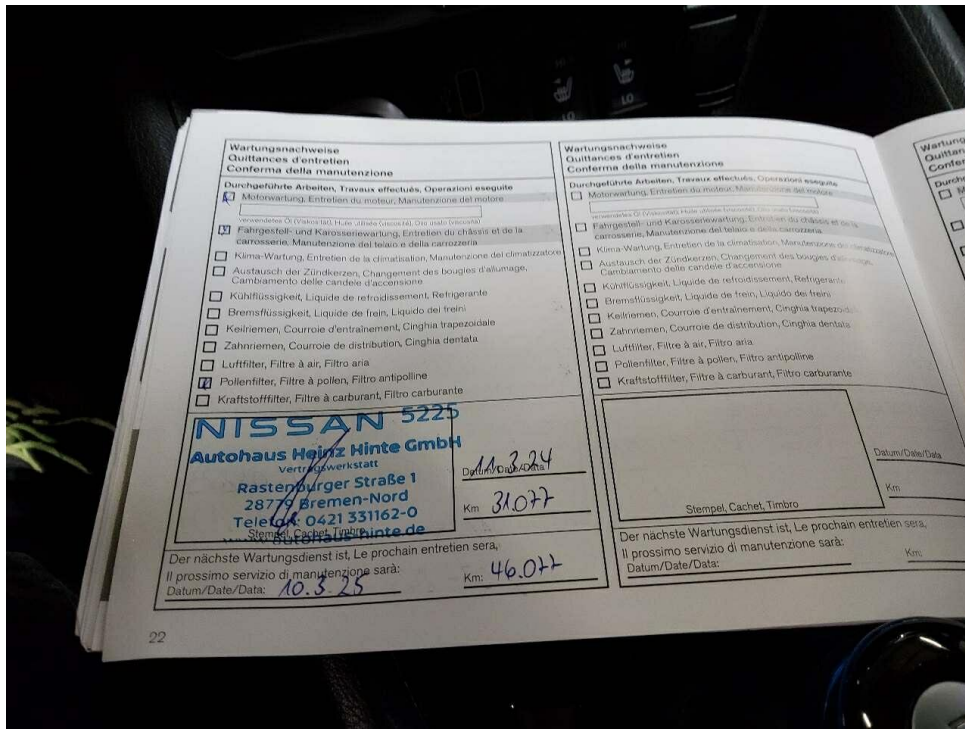 LO
LO
Wartungsnachweise
Quittances d'entretien
Conferma della manutenzione
Durchgeführte Arbeiten, Travaux effectués, Operazioni eseguite
Motorwartung, Entretien du moteur, Manutenzione del motore
verwendetes Öl (Viskosität), Huile utilisée (viscosité), Olio usato (viscosità)
Fahrgestell- und Karosseriewartung, Entretien du châssis et de la
carrosserie, Manutenzione del telaio e della carrozzeria
Klima-Wartung, Entretien de la climatisation, Manutenzione del climatizzatore
Austausch der Zündkerzen, Changement des bougies d'allumage,
Cambiamento delle candele d'accensione
Kühlflüssigkeit, Liquide de refroidissement, Refrigerante
Bremsflüssigkeit, Liquide de frein, Liquido dei freini
Keilriemen, Courroie d'entraînement, Cinghia trapezoidale
Zahnriemen, Courroie de distribution, Cinghia dentata
Luftfilter, Filtre à air, Filtro aria
Pollenfilter, Filtre à pollen, Filtro antipolline
Kraftstofffilter, Filtre à carburant, Filtro carburante
NISSAN 5225
Autohaus Heinz Hinte GmbH
Vertragswerkstatt
Rastenburger Straße 1
28779 Bremen-Nord
Telefon: 0421 331162-0
autohaus-hinte.de
Stempel, Cachet, Timbro
Datum/Date/Data 11.3.24
Km 31.077
Der nächste Wartungsdienst ist, Le prochain entretien sera,
Il prossimo servizio di manutenzione sarà:
Datum/Date/Data: 10.3.25
Km: 46.077
22
Wartungsnachweise
Quittances d'entretien
Conferma della manutenzione
Durchgeführte Arbeiten, Travaux effectués, Operazioni eseguite
Motorwartung, Entretien du moteur, Manutenzione del motore
Fahrgestell- und Karosseriewartung, Entretien du châssis et de la
carrosserie, Manutenzione del telaio e della carrozzeria
Klima-Wartung, Entretien de la climatisation, Manutenzione del climatizzatore
Austausch der Zündkerzen, Changement des bougies d'allumage,
Cambiamento delle candele d'accensione
Kühlflüssigkeit, Liquide de refroidissement, Refrigerante
Bremsflüssigkeit, Liquide de frein, Liquido dei freini
Keilriemen, Courroie d'entraînement, Cinghia trapezoidale
Zahnriemen, Courroie de distribution, Cinghia dentata
Luftfilter, Filtre à air, Filtro aria
Pollenfilter, Filtre à pollen, Filtro antipolline
Kraftstofffilter, Filtre à carburant, Filtro carburante
Stempel, Cachet, Timbro
Datum/Date/Data
Km
Der nächste Wartungsdienst ist, Le prochain entretien sera,
Il prossimo servizio di manutenzione sarà:
Datum/Date/Data:
Km: